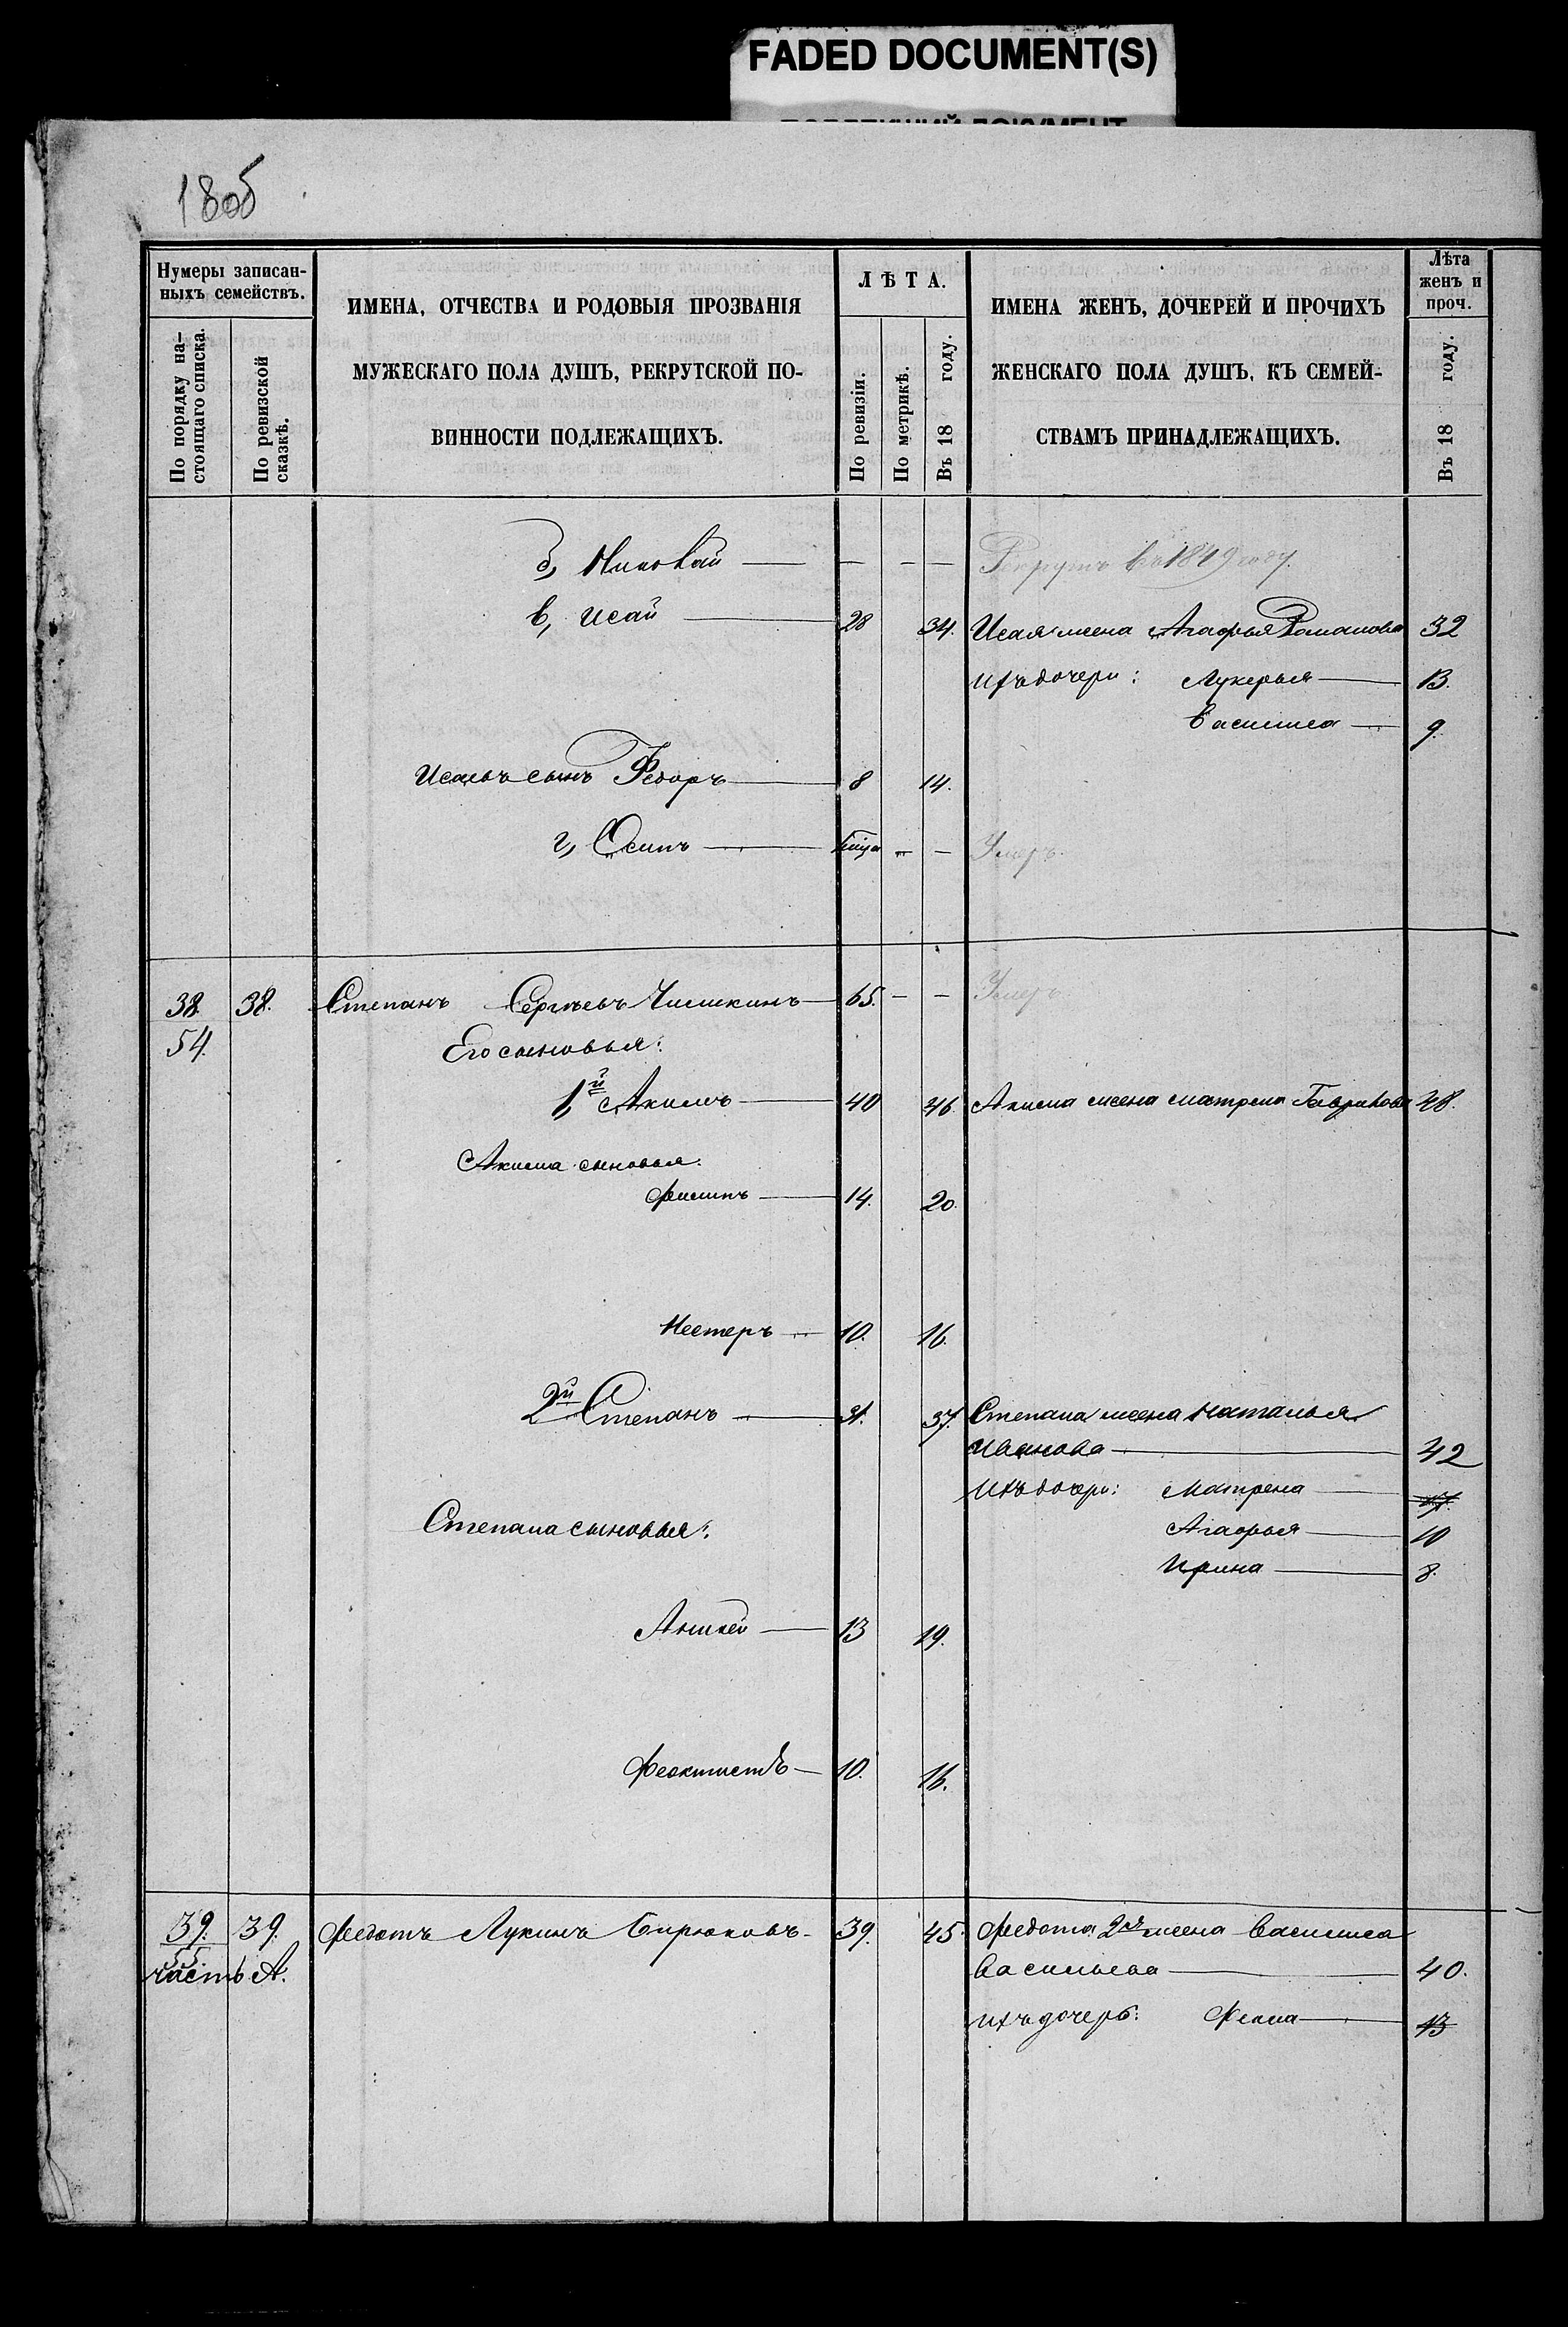 FADED DOCUMENT(S)
1805
Нумеры записан-
ныхъ семействъ.
По порядку на-
стоящаго списка.
По ревизской
сказкѣ.
ИМЕНА, ОТЧЕСТВА И РОДОВЫЯ ПРОЗВАНІЯ
МУЖЕСКАГО ПОЛА ДУШЪ, РЕКРУТСКОЙ ПО-
ВИННОСТИ ПОДЛЕЖАЩИХЪ.
ЛѢТА.
По ревизіи.
По метрикѣ.
Въ 18 году.
ИМЕНА ЖЕНЪ, ДОЧЕРЕЙ И ПРОЧИХЪ
ЖЕНСКАГО ПОЛА ДУШЪ, КЪ СЕМЕЙ-
СТВАМЪ ПРИНАДЛЕЖАЩИХЪ.
Лѣта
женъ и
проч.
Въ 18 году.
б, Николай — — — — Рекрутъ въ 1849 году.
в, Исай 28 34. Исая жена Агафья Романова 32
Ихъ дочери: Лукерья 13.
Василиса 9.
Исаевъ сынъ Федоръ 8 14.
г, Осипъ — — Умеръ.
38. 38. Степанъ Сергѣевъ Чишкинъ 65. — — Умеръ
54. Его сыновья:
1й Акимъ 40 46. Акима жена Матрена Гаврилова 48.
Акима сыновья:
Филипъ 14. 20.
Нестеръ 10. 16.
2й Степанъ 31. 37. Степана жена Наталья
Иванова 42
Ихъ дочери: Матрена
Степана сыновья: Агафья 10
Ирина 8.
Аникей 13 19.
Феоктистъ 10. 16.
39. 39. Федотъ Лукинъ Бирюковъ 39. 45. Федота 2я жена Василиса
55.
часть А. Васильева 40.
Ихъ дочерь: Фекла 13